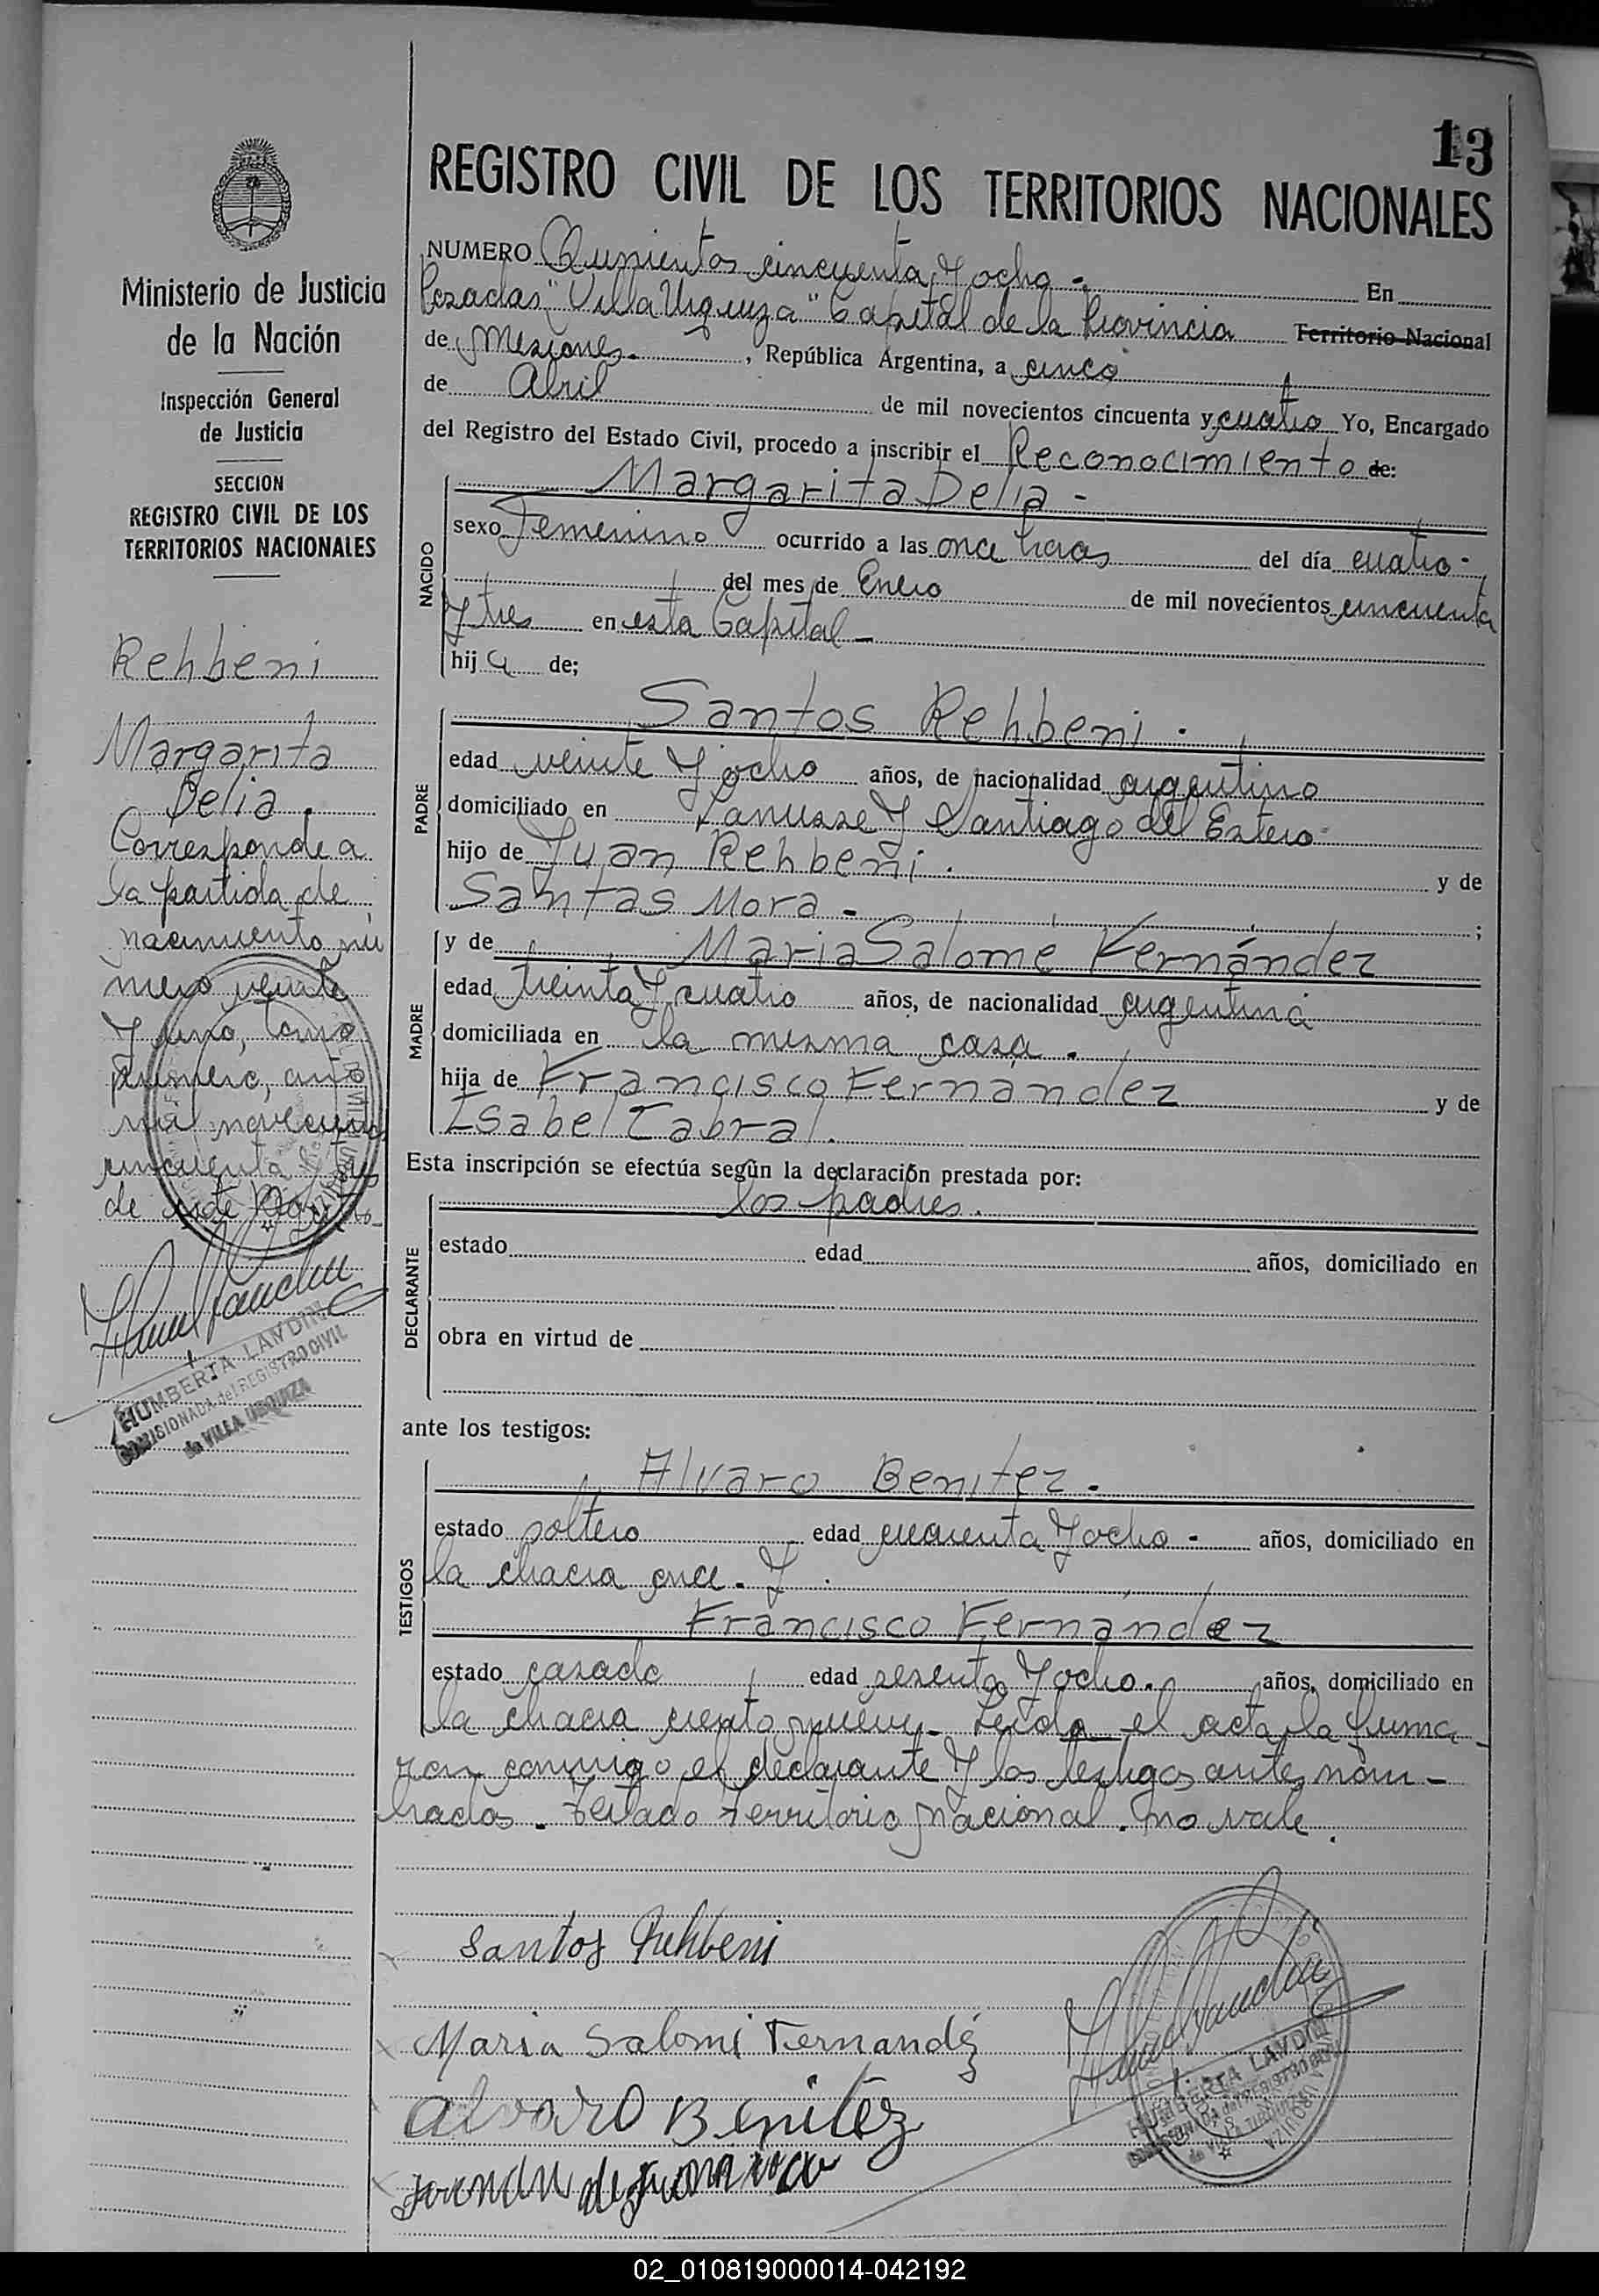 13
REGISTRO CIVIL DE LOS TERRITORIOS NACIONALES
Ministerio de Justicia
de la Nación
Inspección General
de Justicia
SECCION
REGISTRO CIVIL DE LOS
TERRITORIOS NACIONALES
Rehbeni
Margarita
Delia.
Corresponde a
la partida de
nacimiento nú
mero veinte
y uno, tomo
primero, año
mil novecientos
cincuenta y tres
de este
HUMBERTA LANDIN
COMISIONADA del REGISTRO CIVIL
de VILLA URQUIZA
NUMERO Quinientos cincuenta y ocho -. En
Posadas "Villa Urquiza" Capital de la Provincia Territorio Nacional
de Misiones. , República Argentina, a cinco
de Abril de mil novecientos cincuenta y cuatro Yo, Encargado
del Registro del Estado Civil, procedo a inscribir el Reconocimiento de:
NACIDO
Margarita Delia -
sexo Femenino ocurrido a las once horas del día cuatro -
del mes de Enero de mil novecientos cincuenta
y tres en esta Capital -
hij a de;
PADRE
Santos Rehbeni.
edad veinte y ocho años, de nacionalidad argentino
domiciliado en Lanusse y Santiago del Estero
hijo de Juan Rehbeni. y de
Santas Mora - ;
MADRE
y de Maria Salomé Fernández
edad treinta y cuatro años, de nacionalidad argentina
domiciliada en la misma casa.
hija de Francisco Fernández y de
Isabel Cabral.
Esta inscripción se efectúa según la declaración prestada por:
DECLARANTE
los padres.
estado edad años, domiciliado en
obra en virtud de
ante los testigos:
TESTIGOS
Alvaro Benitez.
estado soltero edad cuarenta y ocho - años, domiciliado en
la chacra once. y
Francisco Fernández
estado casado edad sesenta y ocho. años, domiciliado en
la chacra ciento nueve - Leida el acta la firma
ron conmigo el declarante y los testigos antes nom -
brados. Testado Territorio Nacional. no vale.
Santos Rehbeni
Maria Salomé Fernandéz
Alvaro Benitéz
HUMBERTA LANDIN
02_010819000014-042192